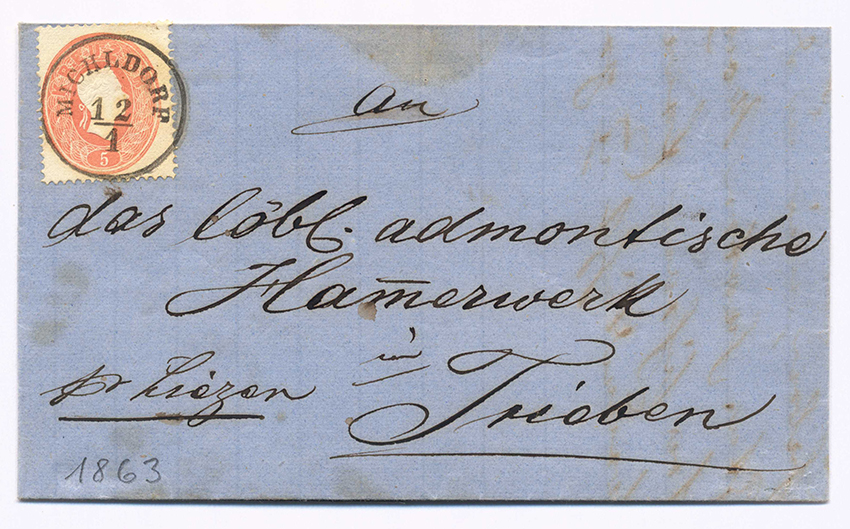 MICHLDORF
12
1
5
An
das löbl. admontische
Ham̅erwerk
in
pr Liezen
Trieben
1863